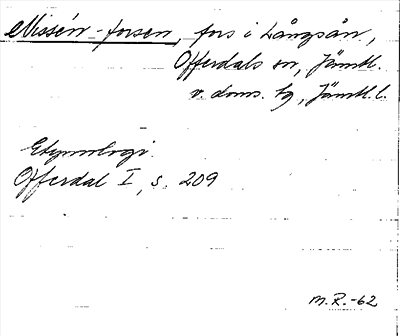 Nissén-forsen, fors i Långsån,
Offerdals sn, Jämtl.
v. doms. tg, Jämtl. l.
Etymologi
Offerdal I, s. 209
M.R.-62